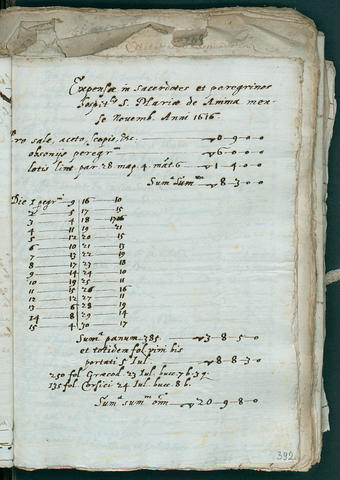 Expensæ in sacerdotes et peregrinos
hospit. S. Mariæ de Anima men-
se Novemb. Anni 1616
Pro sale, aceto, scopis, &c. 0–9–0–0
obsonijs peregr. 6–0–0–0
lotis lint. par. 28 map. 4. mát. 6 1–4–0–0
Sumª Sum 8–3–0–0
Die 1 pegr. 9 16 10
2 5 17 15
3 4 18
4 11 19 21
5 12 20 15
6 10 21 13
7 13 22 19
8 17 23 18
9 14 24 10
10 19 25
11 15 26 16
12 12 27
13 6 28
14 8 29
15 4 30 17
Sumª panum 385 3–8–5–0
et totidem fol. vini bis
portati 5 Iul. 8–8–3–0
250 fol. Græcod. 23 Iul. bucc. 7 b. 39
135 fol. Corsici 24 Iul. bucc. 8 b.
Sumª sum omn. 20–9–8–0
392